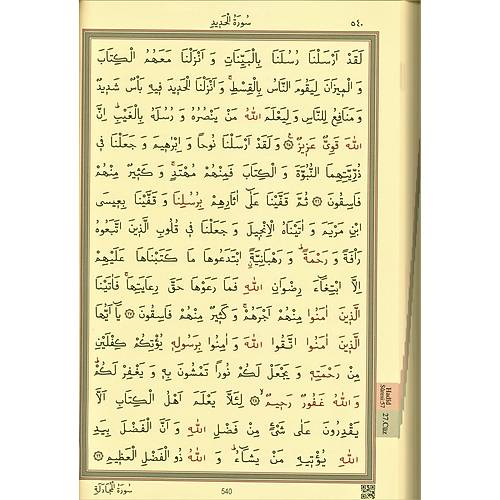 سُورَةُ الْحَدِيدِ ٥٤٠
لَقَدْ اَرْسَلْنَا رُسُلَنَا بِالْبَيِّنَاتِ وَ اَنْزَلْنَا مَعَهُمُ الْكِتَابَ
وَ الْمِيزَانَ لِيَقُومَ النَّاسُ بِالْقِسْطِۚ وَ اَنْزَلْنَا الْحَدِيدَ فِيهِ بَأْسٌ شَدِيدٌ
وَ مَنَافِعُ لِلنَّاسِ وَ لِيَعْلَمَ اللّٰهُ مَنْ يَنْصُرُهُ وَ رُسُلَهُ بِالْغَيْبِۜ اِنَّ
اللّٰهَ قَوِىٌّ عَزِيزٌ ﴿٢٥﴾ وَ لَقَدْ اَرْسَلْنَا نُوحًا وَ اِبْرٰهِيمَ وَ جَعَلْنَا فِى
ذُرِّيَّتِهِمَا النُّبُوَّةَ وَ الْكِتَابَ فَمِنْهُمْ مُهْتَدٍۚ وَ كَثِيرٌ مِنْهُمْ
فَاسِقُونَ ﴿٢٦﴾ ثُمَّ قَفَّيْنَا عَلٰٓى اٰثَارِهِمْ بِرُسُلِنَا وَ قَفَّيْنَا بِعِيسَى
ابْنِ مَرْيَمَ وَ اٰتَيْنَاهُ الْاِنْجِيلَ وَ جَعَلْنَا فِى قُلُوبِ الَّذِينَ اتَّبَعُوهُ
رَأْفَةً وَ رَحْمَةًۜ وَ رَهْبَانِيَّةًۨ ابْتَدَعُوهَا مَا كَتَبْنَاهَا عَلَيْهِمْ
اِلَّا ابْتِغَٓاءَ رِضْوَانِ اللّٰهِ فَمَا رَعَوْهَا حَقَّ رِعَايَتِهَاۚ فَاٰتَيْنَا
الَّذِينَ اٰمَنُوا مِنْهُمْ اَجْرَهُمْۚ وَ كَثِيرٌ مِنْهُمْ فَاسِقُونَ ﴿٢٧﴾ يَٓا اَيُّهَا
الَّذِينَ اٰمَنُوا اتَّقُوا اللّٰهَ وَ اٰمِنُوا بِرَسُولِهِ يُؤْتِكُمْ كِفْلَيْنِ
مِنْ رَحْمَتِهِ وَ يَجْعَلْ لَكُمْ نُورًا تَمْشُونَ بِهِ وَ يَغْفِرْ لَكُمْۜ
وَ اللّٰهُ غَفُورٌ رَحِيمٌۙ ﴿٢٨﴾ لِئَلَّا يَعْلَمَ اَهْلُ الْكِتَابِ اَلَّا
يَقْدِرُونَ عَلٰى شَىْءٍ مِنْ فَضْلِ اللّٰهِ وَ اَنَّ الْفَضْلَ بِيَدِ
اللّٰهِ يُؤْتِيهِ مَنْ يَشَٓاءُۜ وَ اللّٰهُ ذُو الْفَضْلِ الْعَظِيمِ ﴿٢٩﴾
Hadid
Sûresi:57
27.Cüz
540
سُورَةُ الْمُجَادَلَةِ